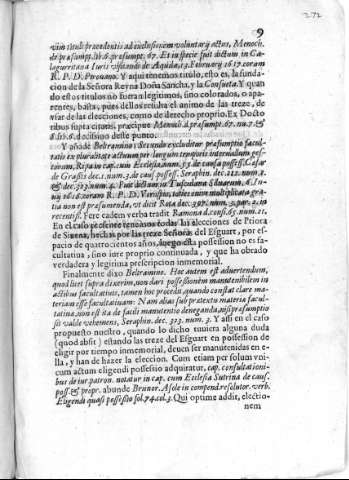 272
9
vim tituli præcedentis ad exclusionem voluntarij actus, Menoch.
de præsumpt. lib.6. præsumpt. 67. Et in specie fuit dictum in Ca-
lagurritana Iuris visitandi de Aquida, 13. February 1617. coram
R. P. D. Pirouano. Y aqui tenemos titulo, esto es, la funda-
cion de la Señora Reyna Doña Sancha, y la Consueta. Y quan
do estos titulos no fueran legitimos, sino colorados, o apa-
rentes, basta, pues dellos resulta el animo de las treze, de
vsar de las elecciones, como de derecho proprio. Ex Docto
ribus supra citatis, præcipuè Menoch. d. præsumpt. 67. nu. 7. &
d. lib. 6. es decisiuo deste punto.
Y añade Beltramino: Secundo excluditur præsumptio facul-
tatis ex pluralitate actuum per longum temporis interuallum gesto-
rum, Ripa in cap. cum Ecclesia num. 53. de causa possess. Cæsar
de Grassis dec. 1. num. 3. de caus. possess. Seraphin. dec. 212. num. 2.
& dec. 313. num. 4. Fuit dictum in Tusculana Siluarum, 6. Iu-
nij 1616. coram R. P. D. Virisspio, vbi ex enim multiplicata gra-
tia non est præsumenda, vt dicit Rota dec. 397. num. 3. par. 2. in
recentiss. Fere eadem verba tradit Ramona d. cons. 65. num. 21.
En el caso presente tenemos todas las elecciones de Priora
de Sixena, hechas por las treze Señoras del Esguart, por es-
pacio de quatrocientos años, luego esta possession no es fa-
cultatiua, sino iure proprio continuada, y que ha obrado
verdadera y legitima prescripcion inmemorial.
Finalmente dixo Beltramino. Hoc autem est aduertendum,
quod licet supra dixerim, non dari possessionem manutenibilem in
actibus facultatiuis, tamen hoc procedit, quando constat clarè ma-
teriam esse facultatiuam: Nam alias sub prætextu materiæ facul-
tatiuæ, non est ita de facili manutentio deneganda, nisi præsumptio
sit valde vehemens, Seraphin. dec. 313. num. 3. Y assi en el caso
propuesto nuestro, quando lo dicho tuuiera alguna duda
(quod absit) estando las treze del Esguart en possession de
eligir por tiempo inmemorial, deuen ser manutenidas en e-
lla, y han de hazer la eleccion. Cum etiam per solum vni-
cum actum eligendi possessio adquiratur, cap. consultationi-
bus de iur. patron. notatur in cap. cum Ecclesia Sutrina de caus.
poss. & propr. abunde Brunor. A sole in compend. resolutor. verb.
Eligendi quasi possessio fol. 74. col. 3. Qui optime addit, electio-
nem